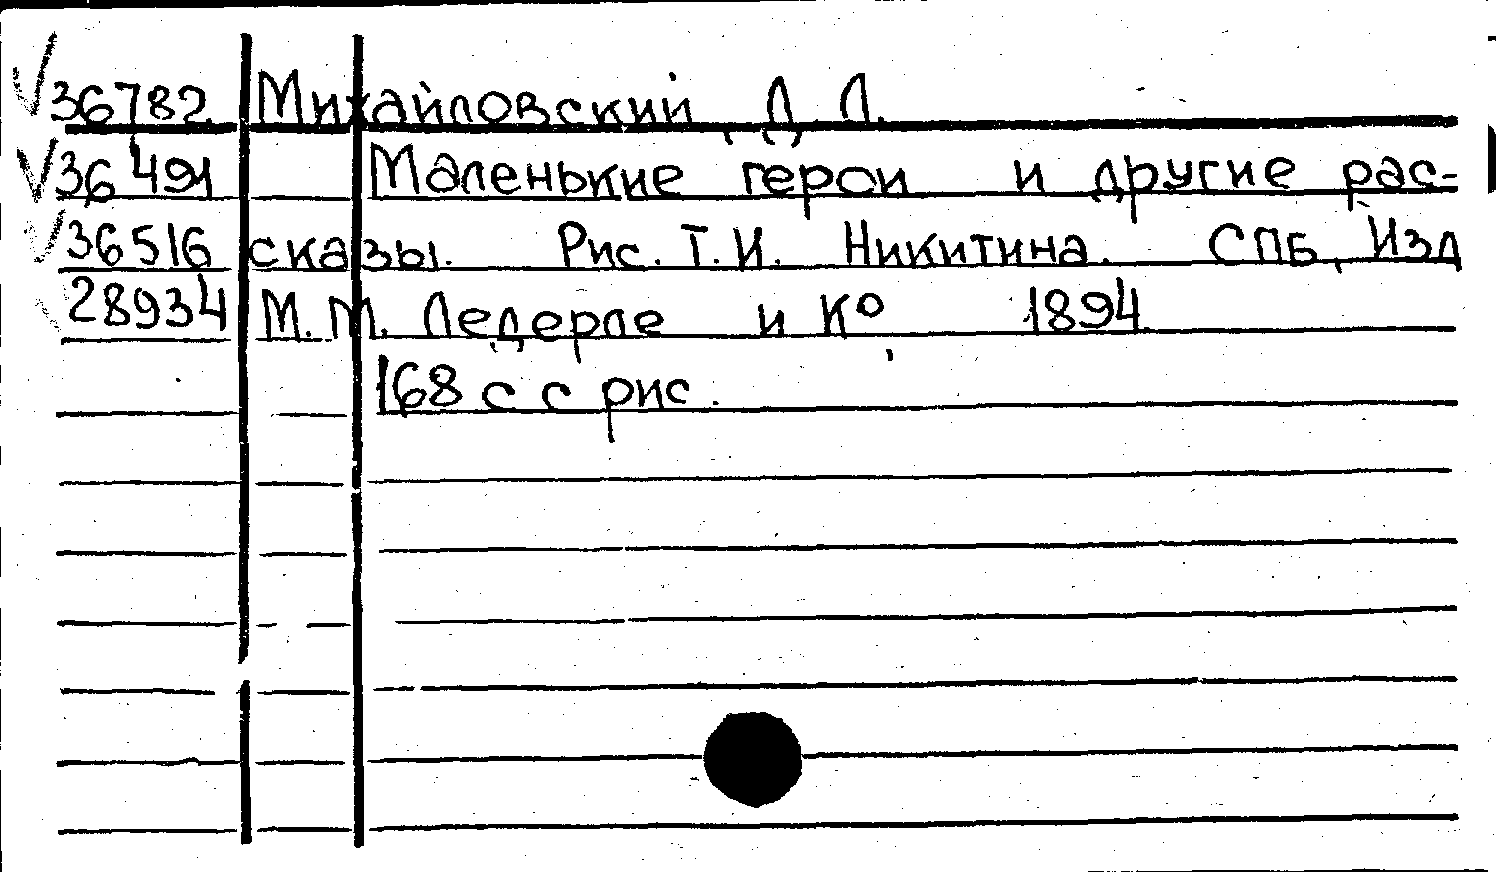 36782 Михайловский, Д. Л.
36491 Маленькие герои и другие рас-
36516 сказы. Рис. Т. И. Никитина. СПБ, Изд
28934 М. М. Ледерле и К° 1894.
168 с с рис.